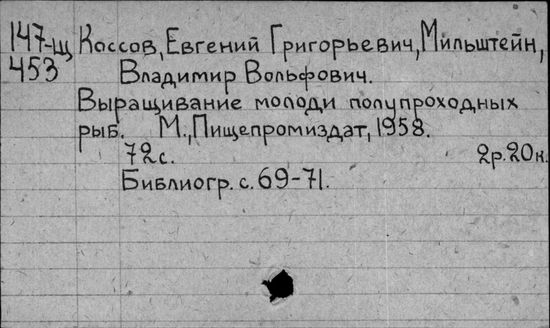 147-щ Коссов, Евгений Григорьевич, Мильштейн,
453 Владимир Вольфович.
Выращивание молоди полупроходных
рыб. М., Пищепромиздат, 1958.
72 с. 2р. 20к.
Библиогр. с. 69-71.